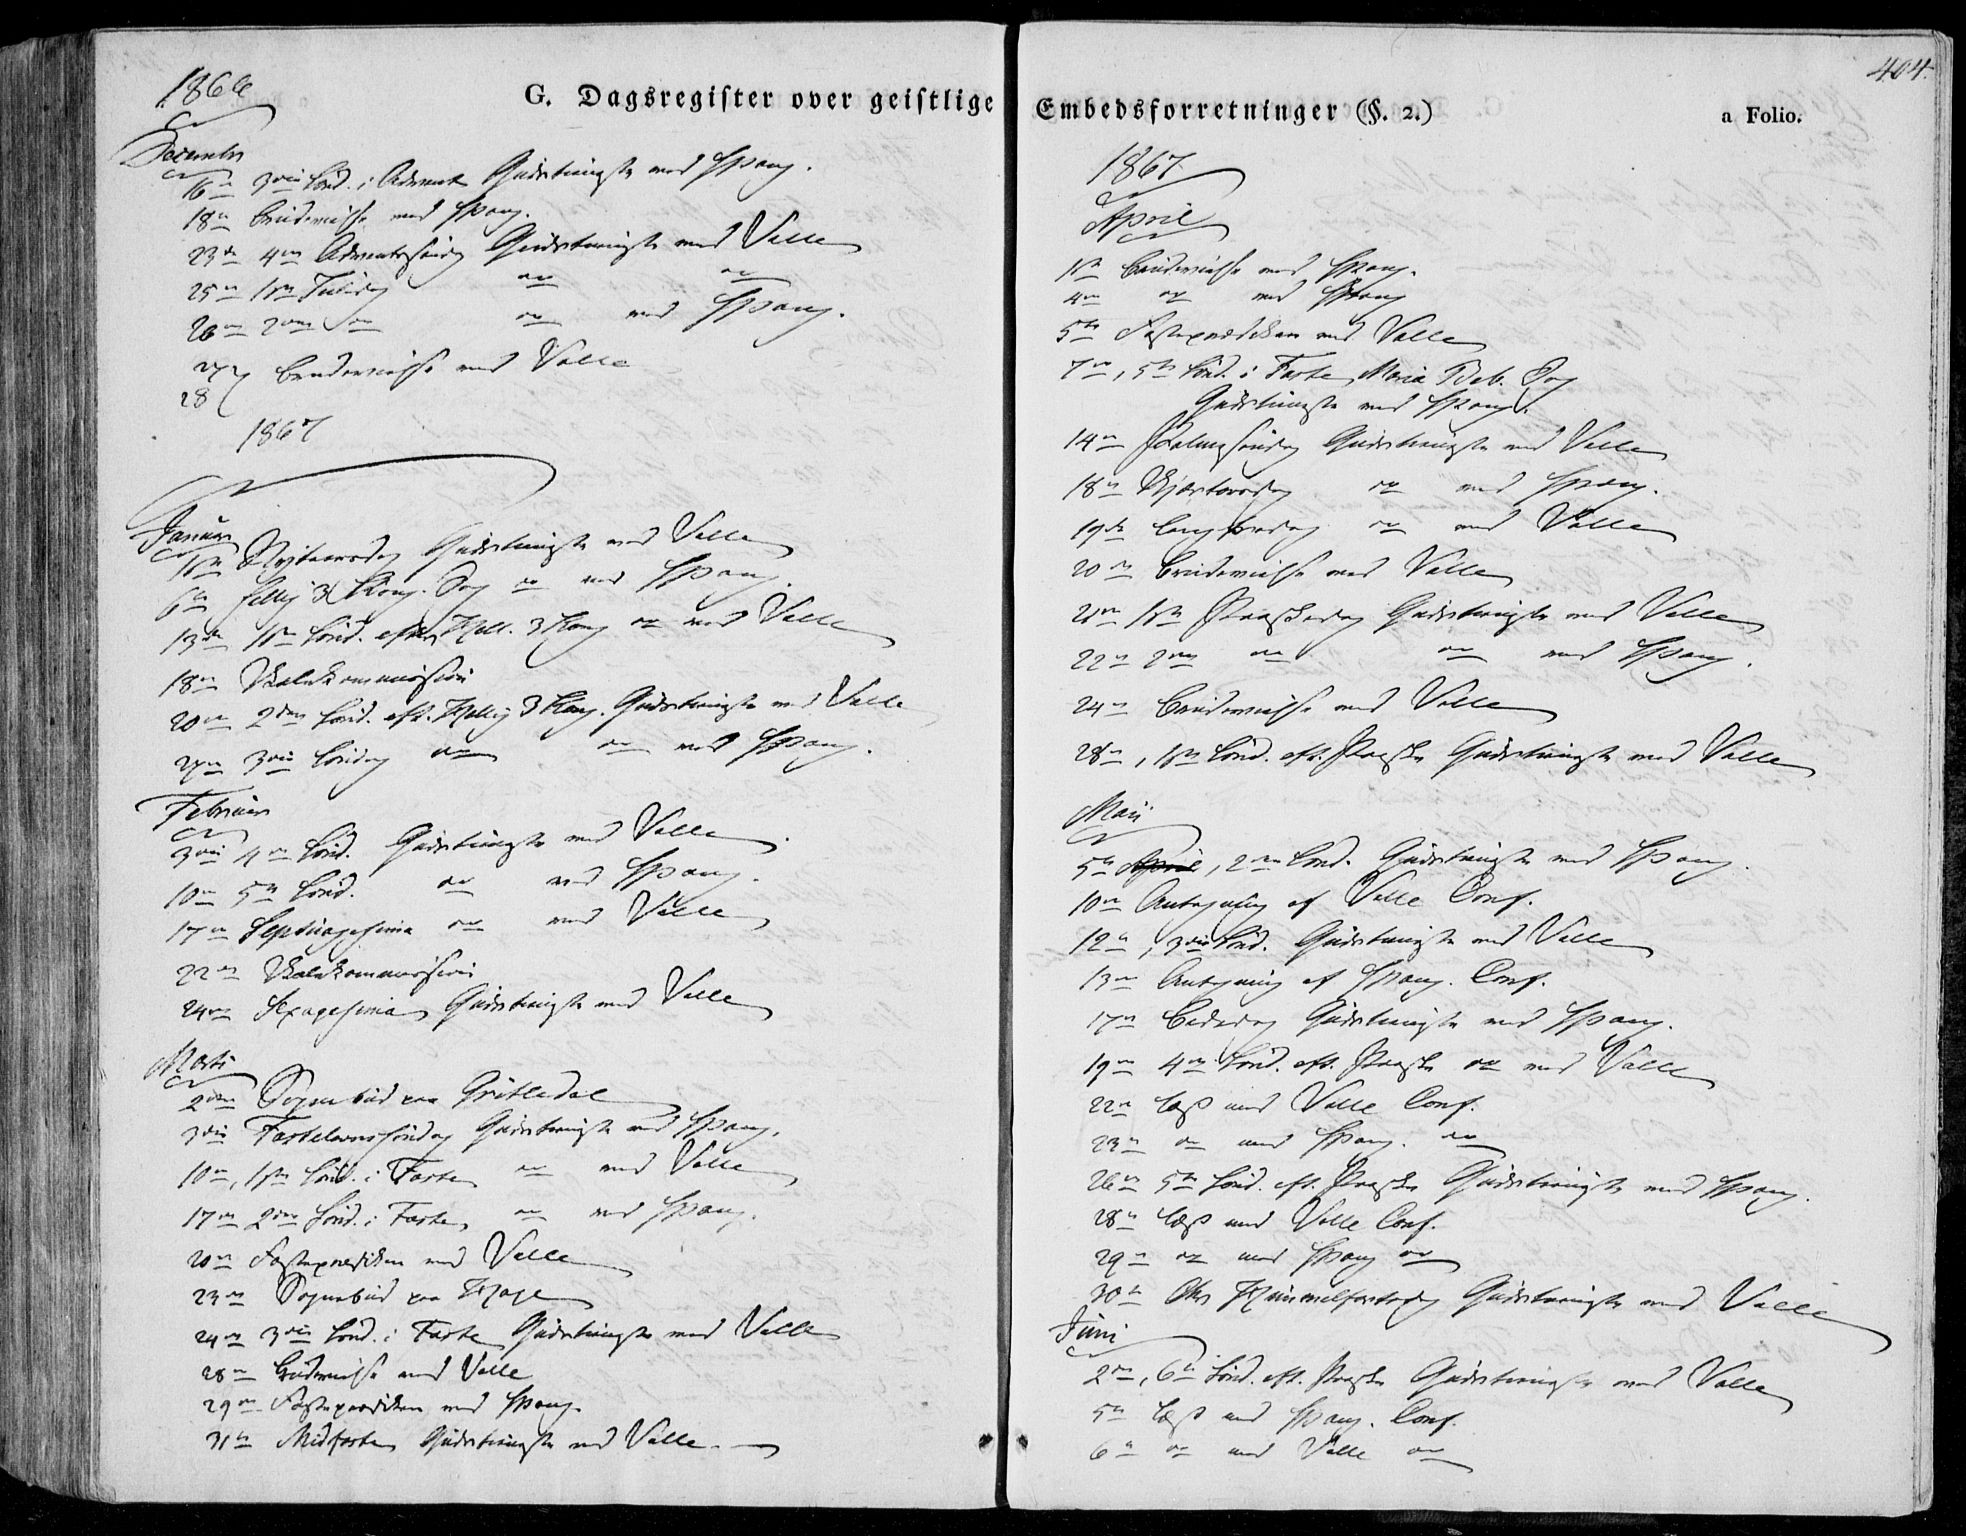 404.
G. Dagsregister over geistlige Embedsforretninger (§. 2.)
a Folio.
1866
December
16de 3die Sønd. i Advent Gudstjeneste ved Hyang.
18de Brudevielse ved Hyang.
23de 4de Adventssøndag Gudstjeneste ved Valle
25de 1ste Juledag do do
26de 2den do do ved Hyang.
27, 28 Brudevielse ved Valle
1867
Januar
1ste Nytaarsdag Gudstjeneste ved Valle
6te Hellig 3 Kong. Dag do ved Hyang.
13de 1ste Sønd. efter Hell. 3 Kong do ved Valle
18de Skolekommission
20de 2den Sønd. eft. Hellig 3 Kong. Gudstjeneste ved Valle
27de 3die Søndag do do ved Hyang.
Februar
3die 4de Sønd. Gudstjeneste ved Valle
10de 5te Sønd. do ved Hyang.
17de Septuagesima do ved Valle
22de Skolekommission
24de Sexagesima Gudstjeneste ved Valle
Marts
2den Sognebud paa
3die Fastelavnssøndag Gudstjeneste ved Hyang.
10de, 1ste Sønd. i Faste do ved Valle
17de 2den Sønd. i Faste, do ved Hyang.
20de Fasteprædiken ved Valle
23de Sognebud paa Hage
24de 3die Sønd. i Faste Gudstjeneste ved Valle
28de Brudevielse ved Valle
29de Fasteprædiken ved Hyang.
31te Midfaste Gudstjeneste ved Valle.
1867.
April
1ste Brudevielse ved Hyang.
4de do ved Hyang
5te Fasteprædiken ved Valle
7de, 5te Sønd. i Faste, Maria Beb. Dag
Gudstjeneste ved Hyang.
14de Palmesøndag Gudstjeneste ved Valle
18de Skjærtorsdag do ved Hyang.
19de Langfredag do ved Valle
20de Brudevielse ved Valle
21de 1ste Paaskedag Gudstjeneste ved Valle
22de 2den do do ved Hyang.
24de Brudevielse ved Valle
28de, 1ste Sønd. eft. Paaske Gudstjeneste ved Valle
Mai
5te April, 2den Sønd. Gudstjeneste ved Hyang.
10de Antegning af Valle Conf.
12te, 3die Sønd. Gudstjeneste ved Valle
13de Antegning af Hyang. Conf.
17de Bededag Gudstjeneste ved Hyang.
19de 4de Sønd. eft. Paaske do ved Valle
22de læst med Valle Conf.
23de do med Hyang. do
26de 5te Sønd. eft. Paaske Gudstjeneste ved Hyang.
28de læst med Valle Conf.
29de do med Hyang do
30te Chr Himmelfartsdag Gudstjeneste ved Valle
Juni
2den, 6te Sønd. eft. Paaske Gudstjeneste ved Valle
5te læst med Hyang. Conf.
6te do med Valle do